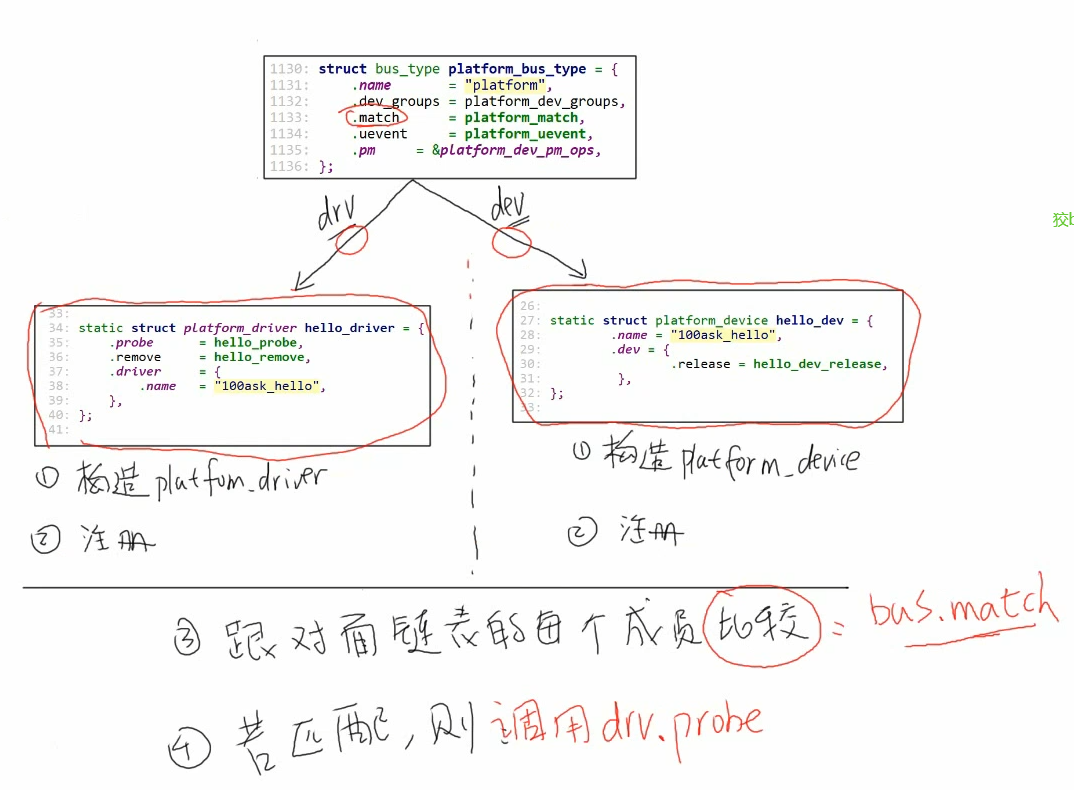 1130: struct bus_type platform_bus_type = {
1131: .name = "platform",
1132: .dev_groups = platform_dev_groups,
1133: .match = platform_match,
1134: .uevent = platform_uevent,
1135: .pm = &platform_dev_pm_ops,
1136: };
drv
dev
33:
34: static struct platform_driver hello_driver = {
35: .probe = hello_probe,
36: .remove = hello_remove,
37: .driver = {
38: .name = "100ask_hello",
39: },
40: };
41:
① 构造 platfom_driver
② 注册
26:
27: static struct platform_device hello_dev = {
28: .name = "100ask_hello",
29: .dev = {
30: .release = hello_dev_release,
31: },
32: };
33:
① 构造 platform_device
② 注册
③ 跟对面链表的每个成员比较 = bus.match
④ 若匹配,则调用drv.probe
狡